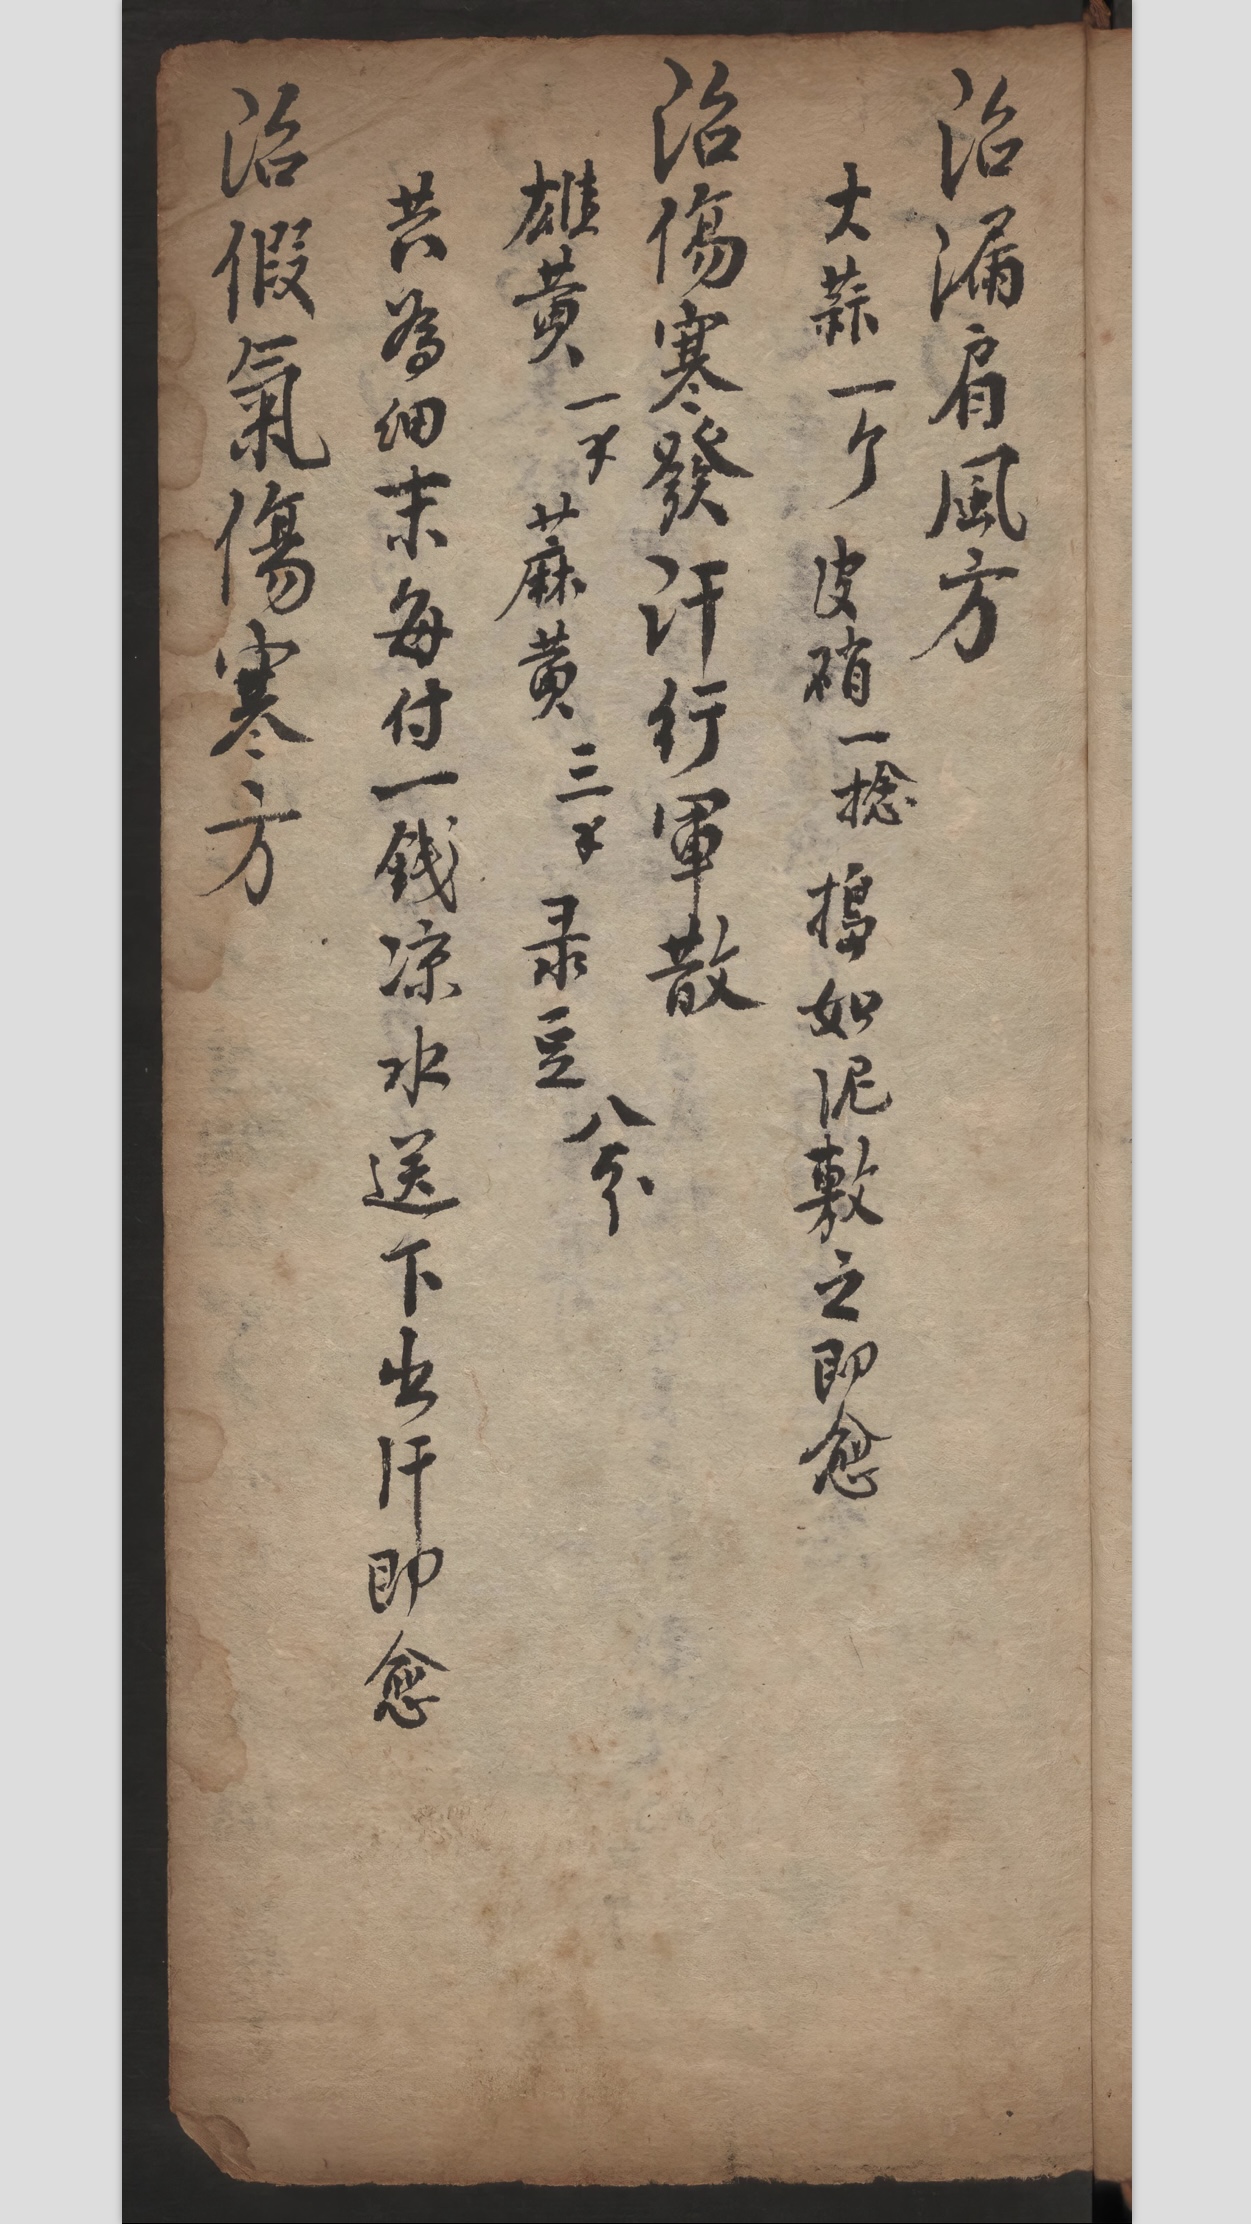 治漏肩風方
大蒜一个 皮硝一捻 搗如泥敷之即愈
治傷寒發汗行軍散
雄黃一才 蔴黃三才 录豆八分
共為細末每付一錢凉水送下出汗即愈
治假氣傷寒方